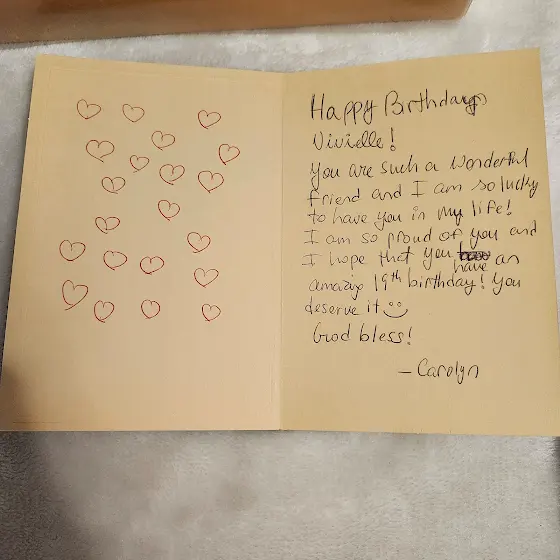 Happy Birthday
Vivielle!
You are such a wonderful
friend and I am so lucky
to have you in my life!
I am so proud of you and
I hope that you have an
amazing 19th birthday! You
deserve it
God bless!
- Carolyn